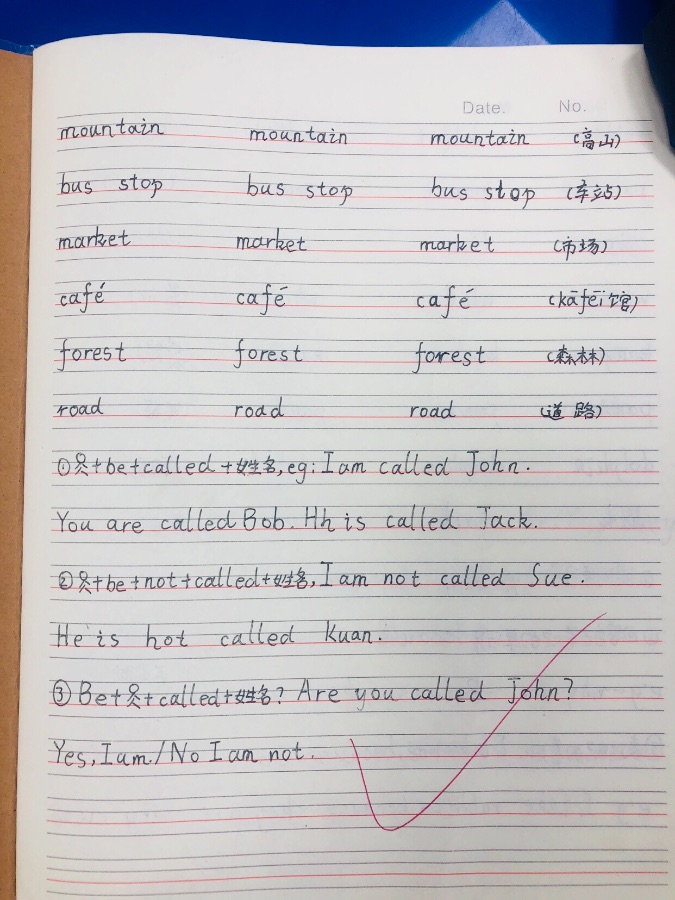 Date. No.
mountain mountain mountain (高山)
bus stop bus stop bus stop (车站)
market market market (市场)
café café café (kāfēi馆)
forest forest forest (森林)
road road road (道路)
①人+be+called+姓名, eg: I am called John.
You are called Bob. Hh is called Jack.
②人+be+not+called+姓名, I am not called Sue.
He is hot called Kuan.
③Be+人+called+姓名? Are you called John?
Yes, I am./No I am not.